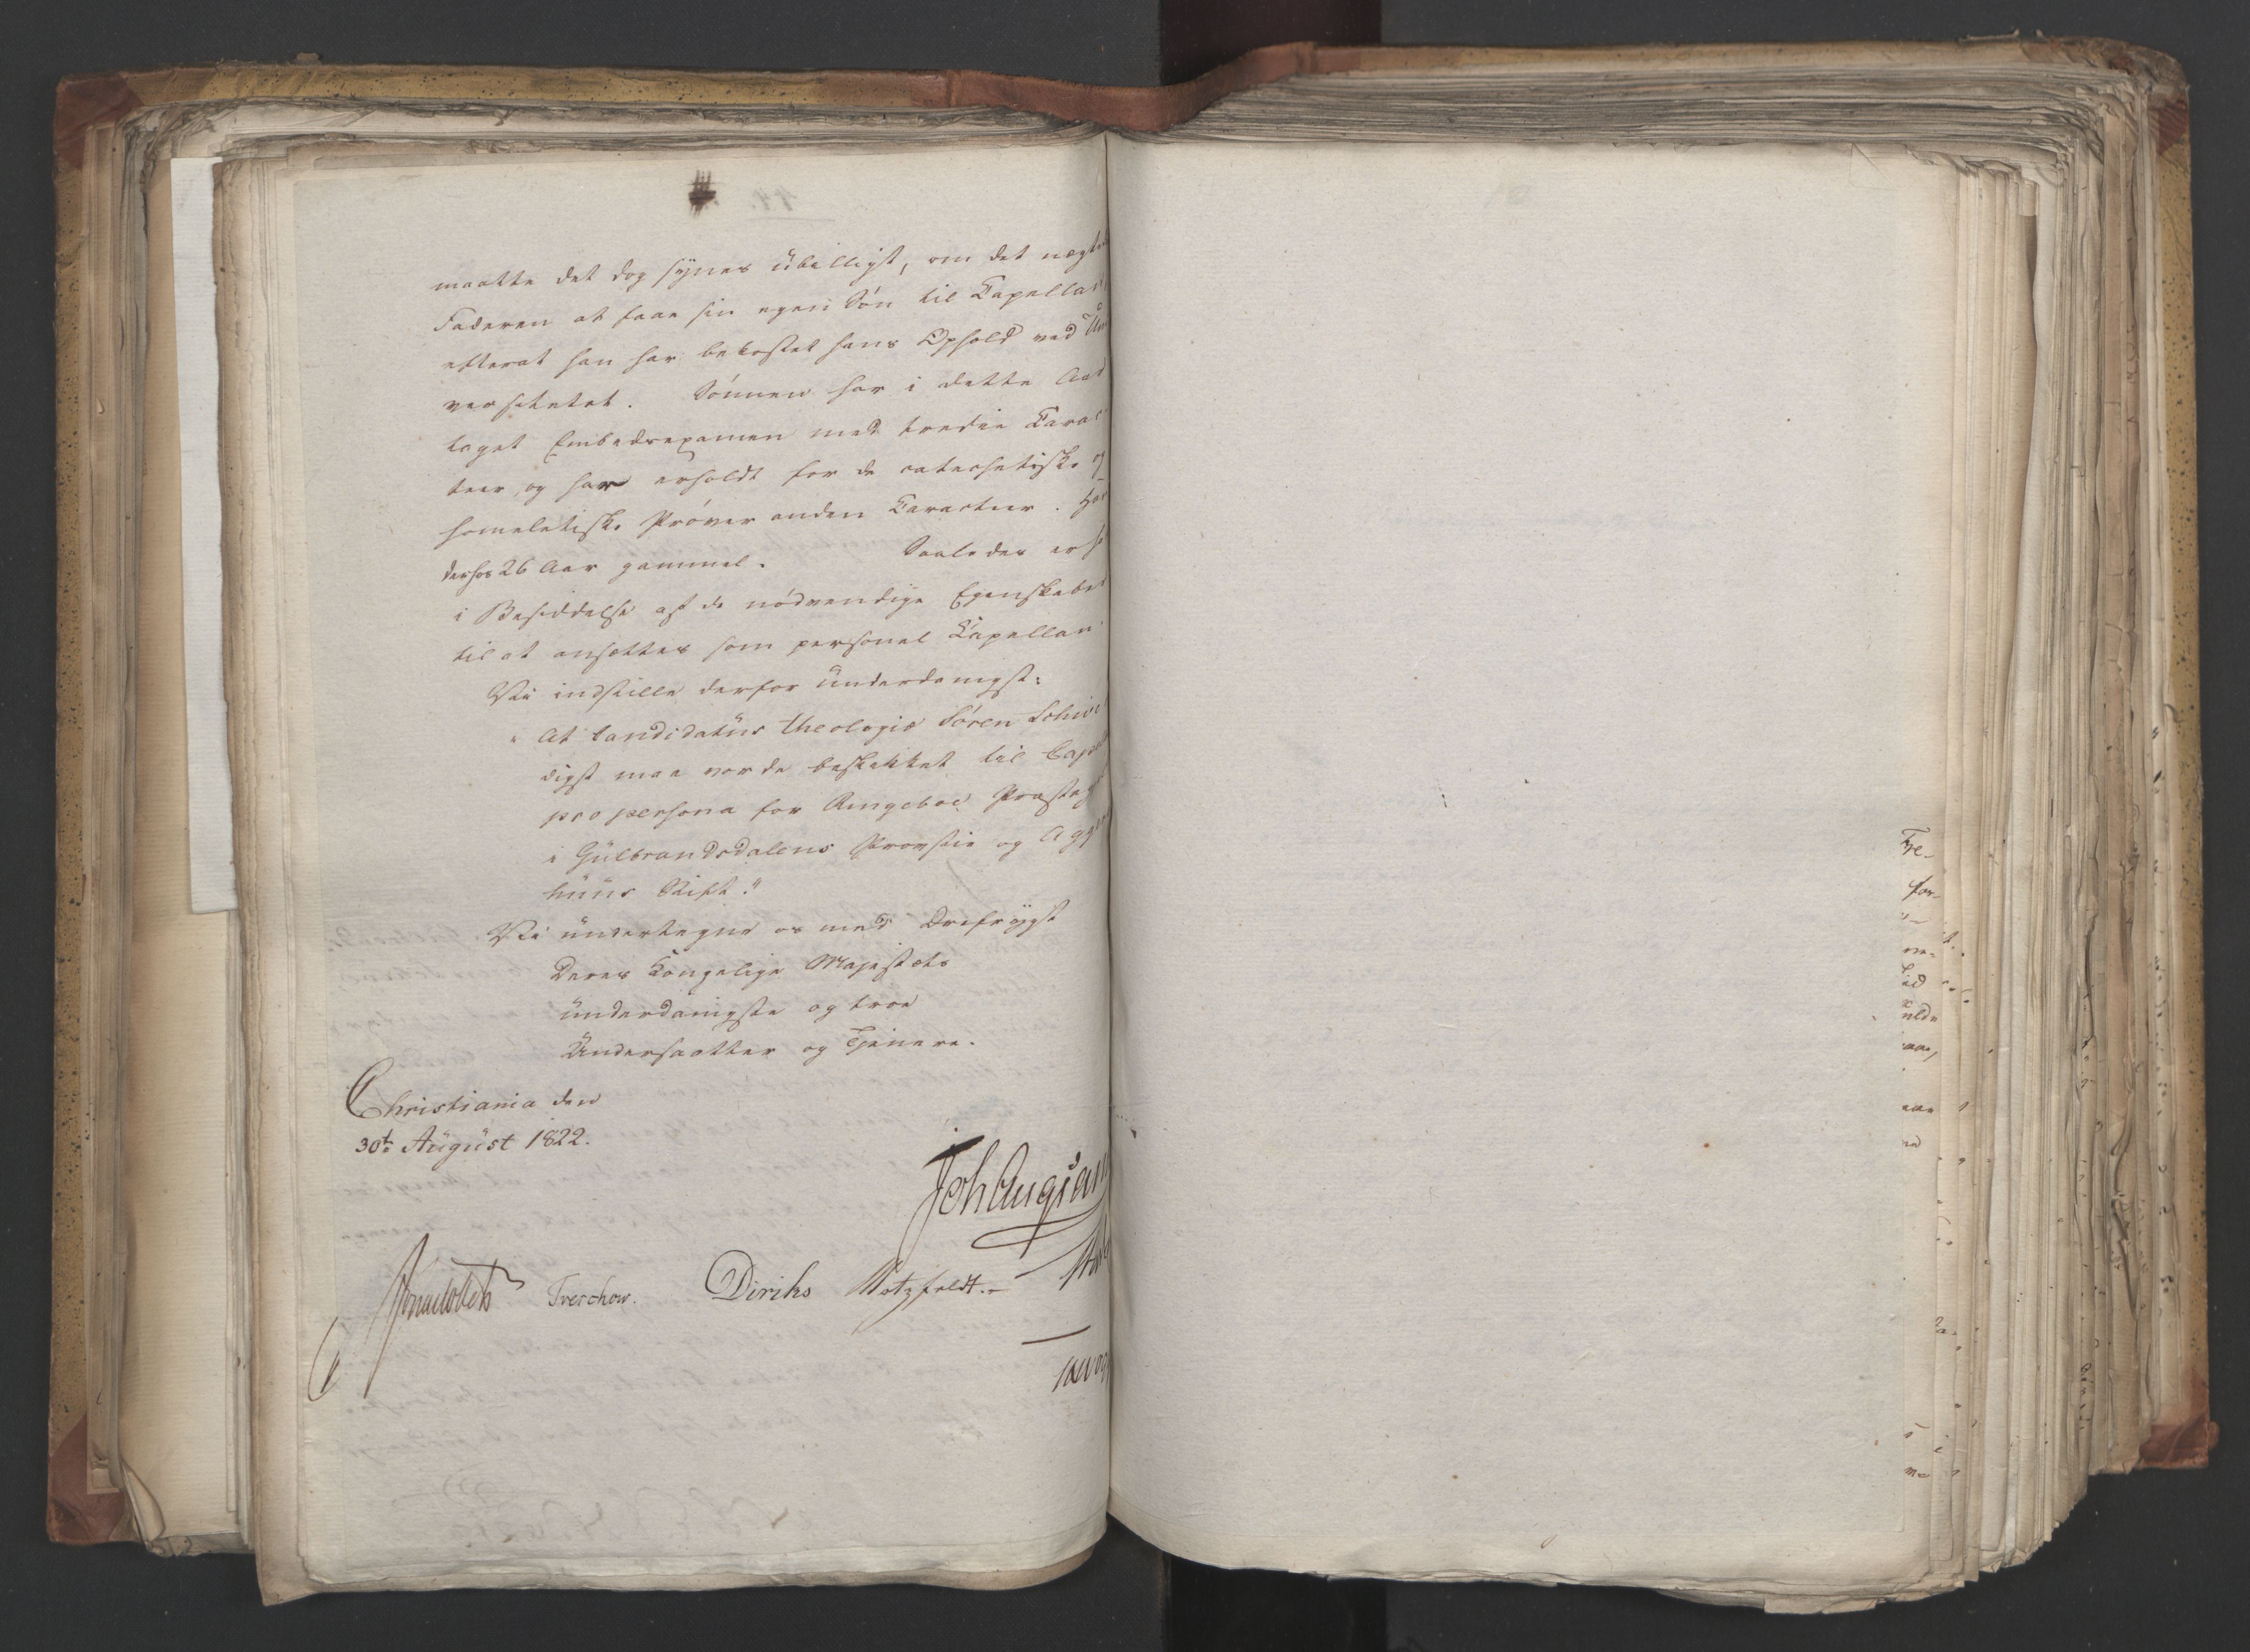 maatte det dog synes übilligt, om det nægtes
Faderen at faae sin egen Søn til Capellan,
efterat han har bekostet hans Ophold ved Uni
versitetet. Sönnen har i dette Aar
taget Embedsexamen med tredie Carac
teer, og har erholdt for de catechetiske og
homeletiske Pröver anden Caracteer. Han
derhos 26 Aar gammel. Saaledes er han
i Besiddelse af de nödvendige Egenskaber
til at ansættes som personel Capellan.
Vi indstille derfor ünderdanigst:
" At Candidatüs theologiæ Sören
digst maa vorde beskikket til
pro persona for Ringeboe
i Gülbrandsdalens Provstie og
hüüs Stift."
Vi ündertegne os med Dristigst
Deres Kongelige Majestæts
ünderdanigste og troe
Ündersaatter og Tjenere.
Christiania den
30te Aügüst 1822.
Joh Aug
Treschow. Diriks Motzfeldt.